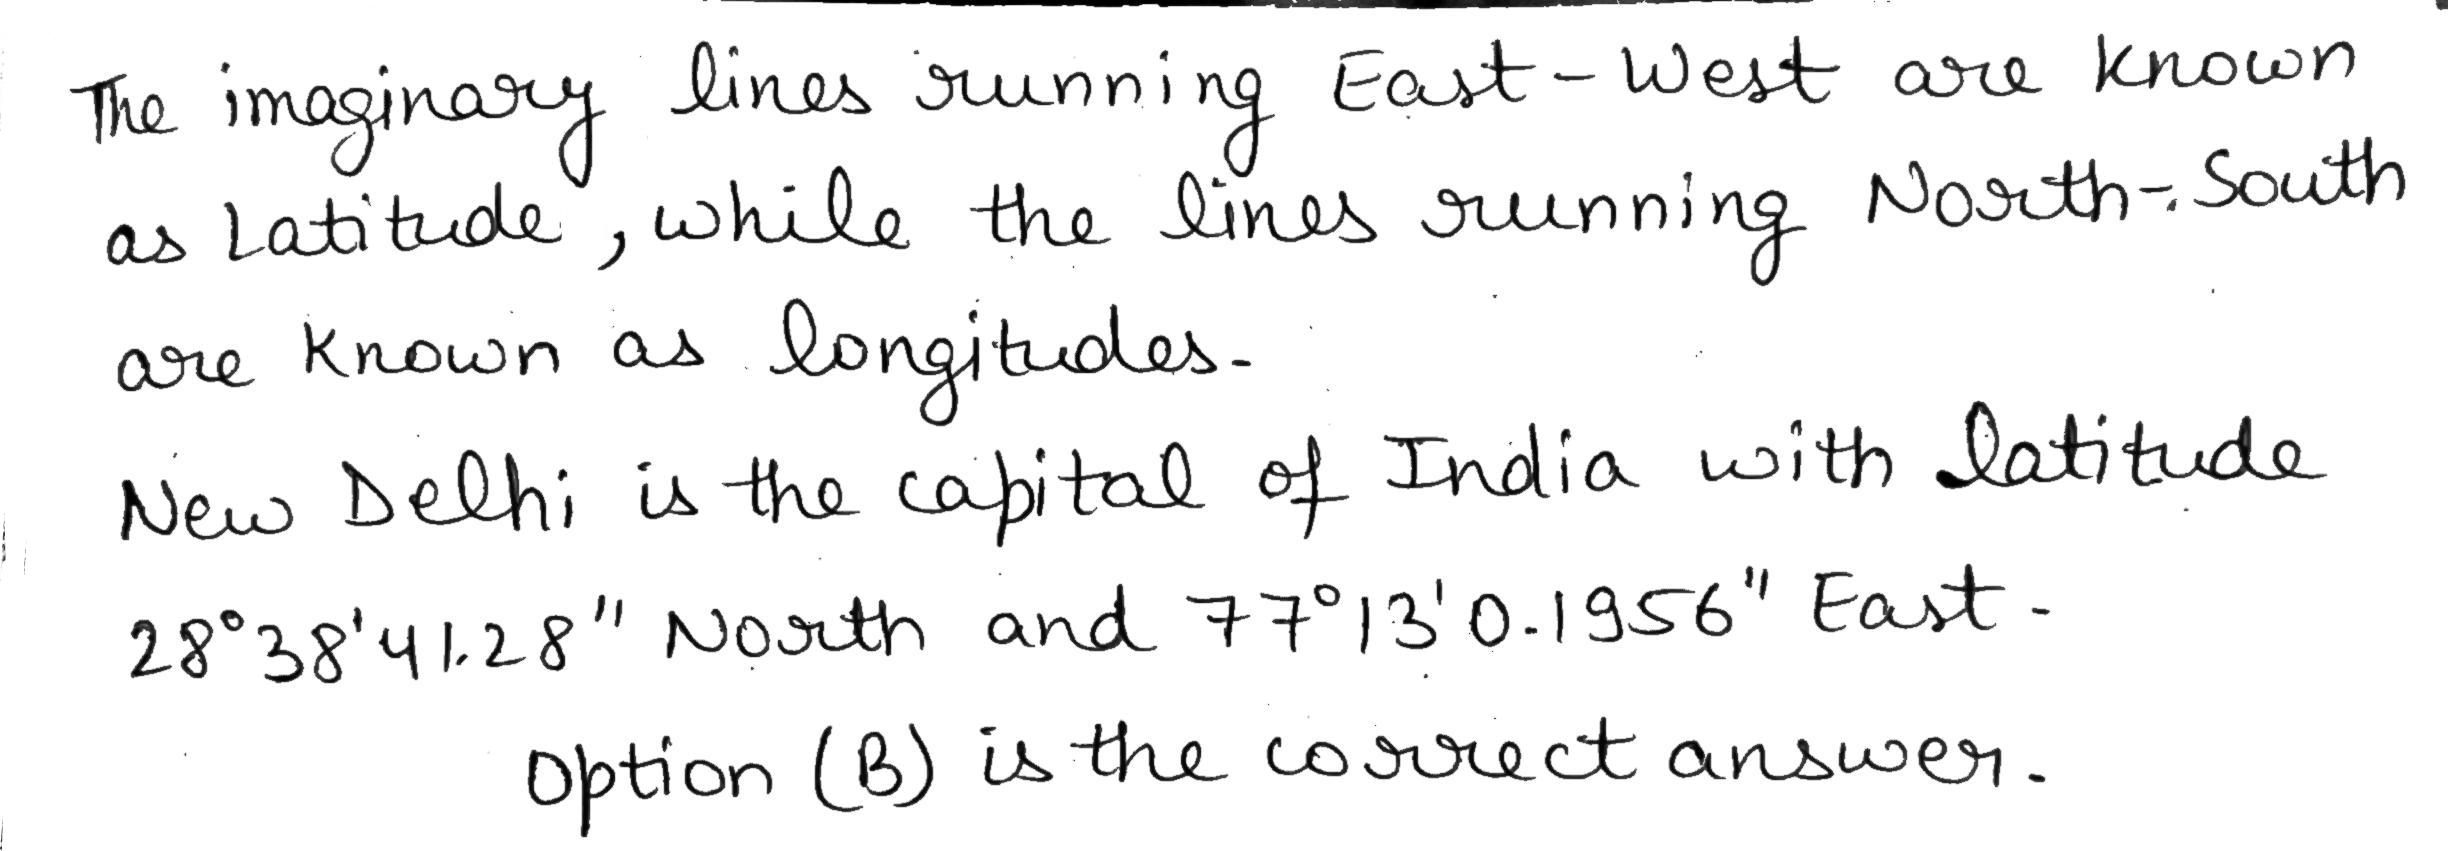 The imaginary lines running East-West are known
as Latitude, while the lines running North-South
are known as longitudes.
New Delhi is the capital of India with latitude
28°38'41.28" North and 77°13'0.1956" East.
Option (B) is the correct answer.